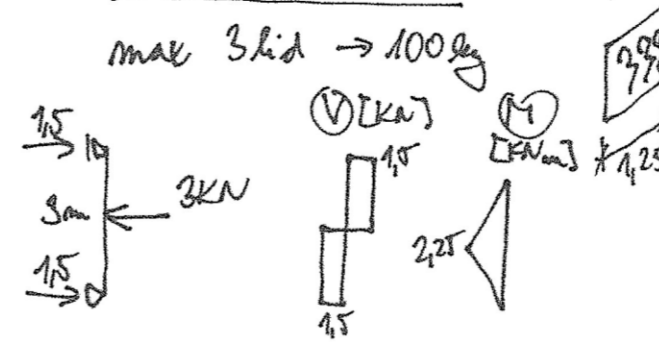 max 3 lid → 100 kg
1,5
3m
3KN
1,5
V [KN]
1,5
1,5
M
[KNm]
2,25
1,25